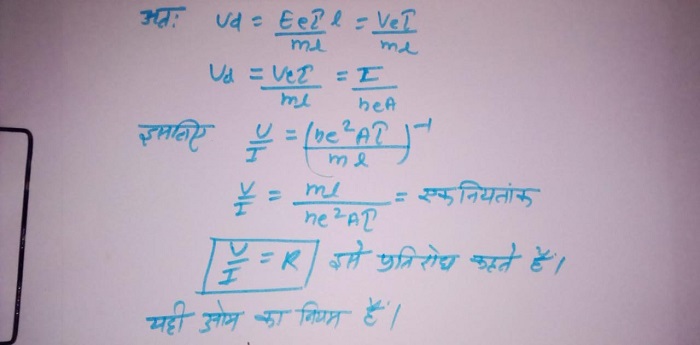 अतः Vd = EeτL/ml l = Veτ/ml
Vd = Veτ/ml = I/neA
इसलिए V/I = (ne²Aτ/ml)⁻¹
V/I = ml/ne²Aτ = एक नियतांक
V/I = R इसे प्रतिरोध कहते हैं।
यही ओम का नियम हैं।